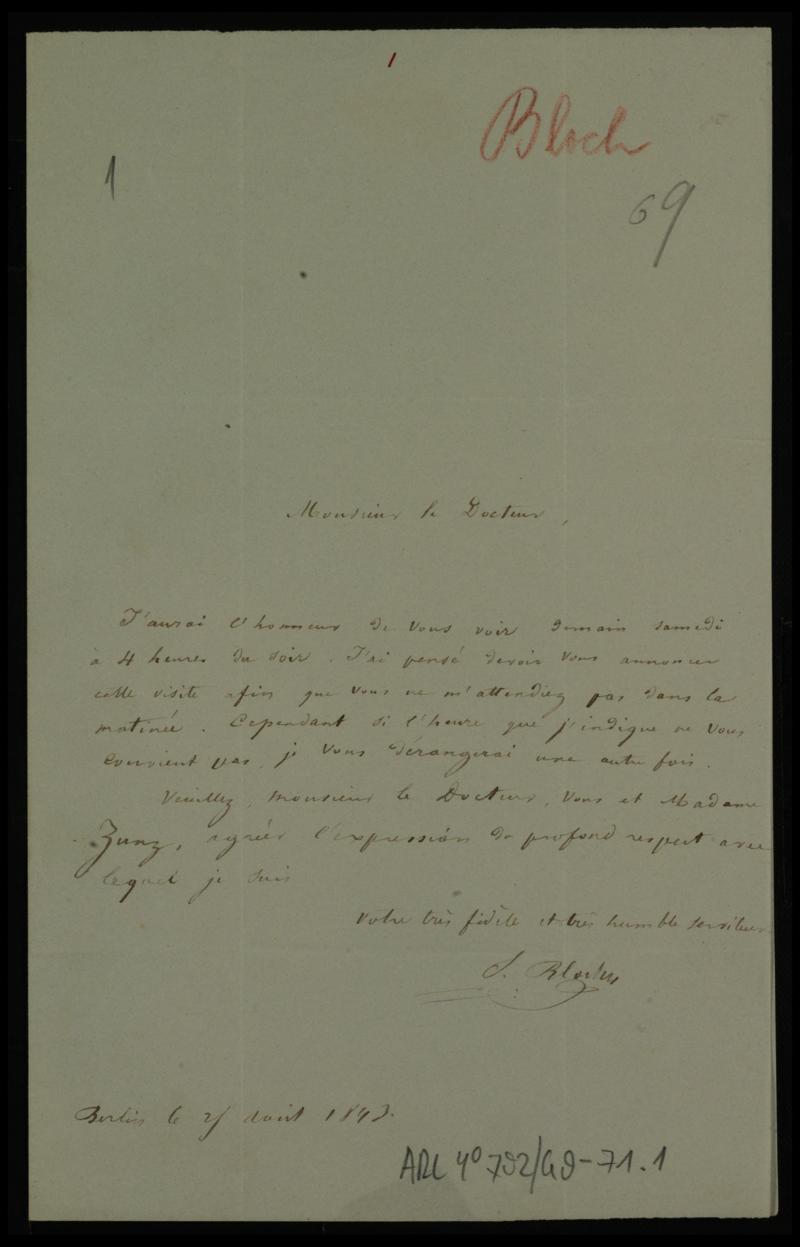 1
Bloch
1
69
Monsieur le Docteur,
J'aurai l'honneur de vous voir demain samedi
à 4 heures du soir. J'ai pensé devoir vous annoncer
cette visite afin que vous ne m'attendiez pas dans la
matinée. Cependant si l'heure que j'indique ne vous
convient pas, je vous dérangerai une autre fois.
Veuillez, monsieur le Docteur, vous et Madame
Zunz, agréer l'expression du profond respect avec
lequel je suis
votre très fidèle et très humble serviteur
S. Bloch
Berlin le 25 août 1843.
ARC 4° 792/G9-71.1